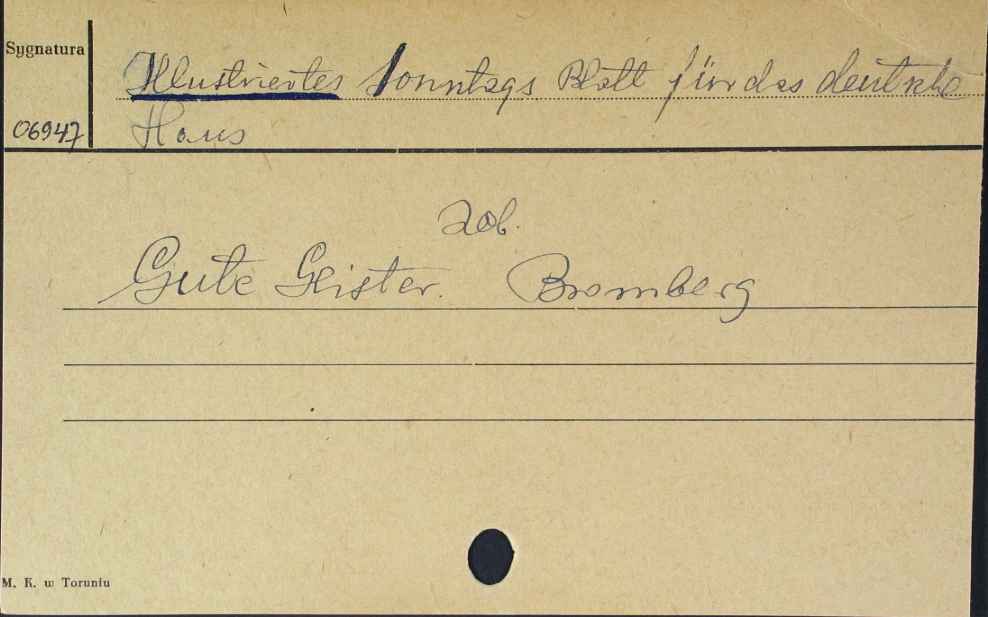 Sygnatura
Illustriertes Sonntags Blatt für das deutsche
06947
Haus
zob.
Gute Geister. Bromberg
M. K. w Toruniu